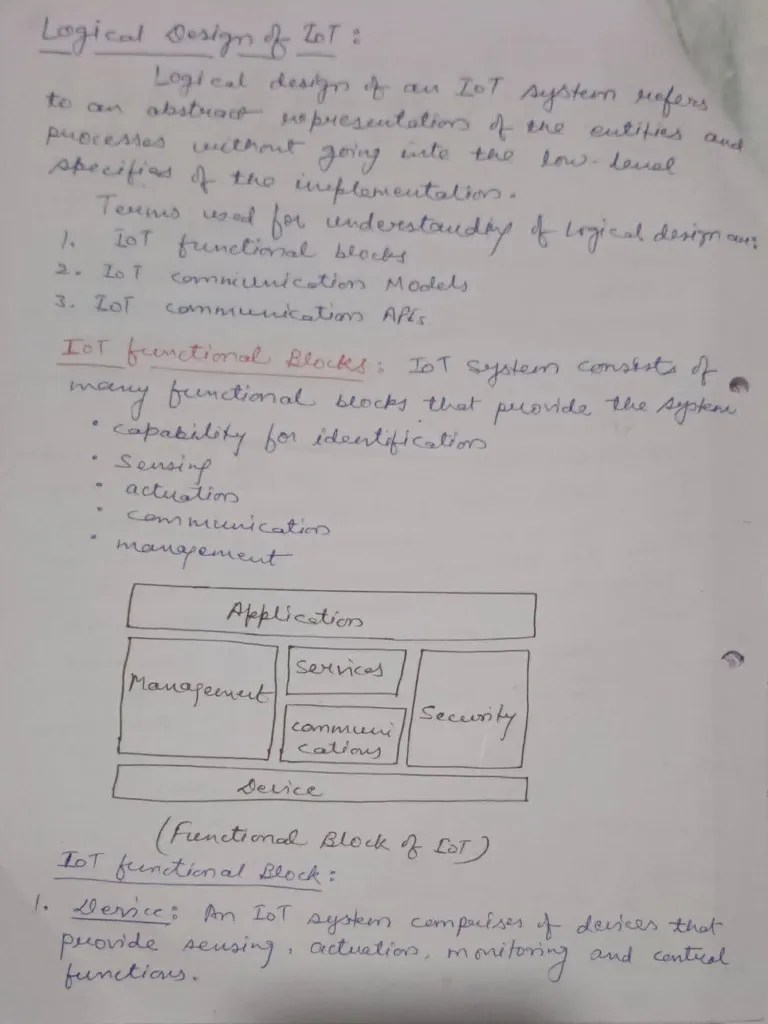 Logical Design of IoT:
Logical design of an IoT system refers
to an abstract representation of the entities and
processes without going into the low-level
specifies of the implementation.
Terms used for understanding of Logical design are:
1. IoT functional blocks
2. IoT communication Models
3. IoT communication APIs
IoT functional Blocks: IoT system consists of
many functional blocks that provide the system
• capability for identification
• Sensing
• actuation
• communication
• management
Application
Management
Services
communi
cations
Security
Device
(Functional Block of IoT)
IoT functional Block:
1. Device: An IoT system comprises of devices that
provide sensing, actuation, monitoring and control
functions.